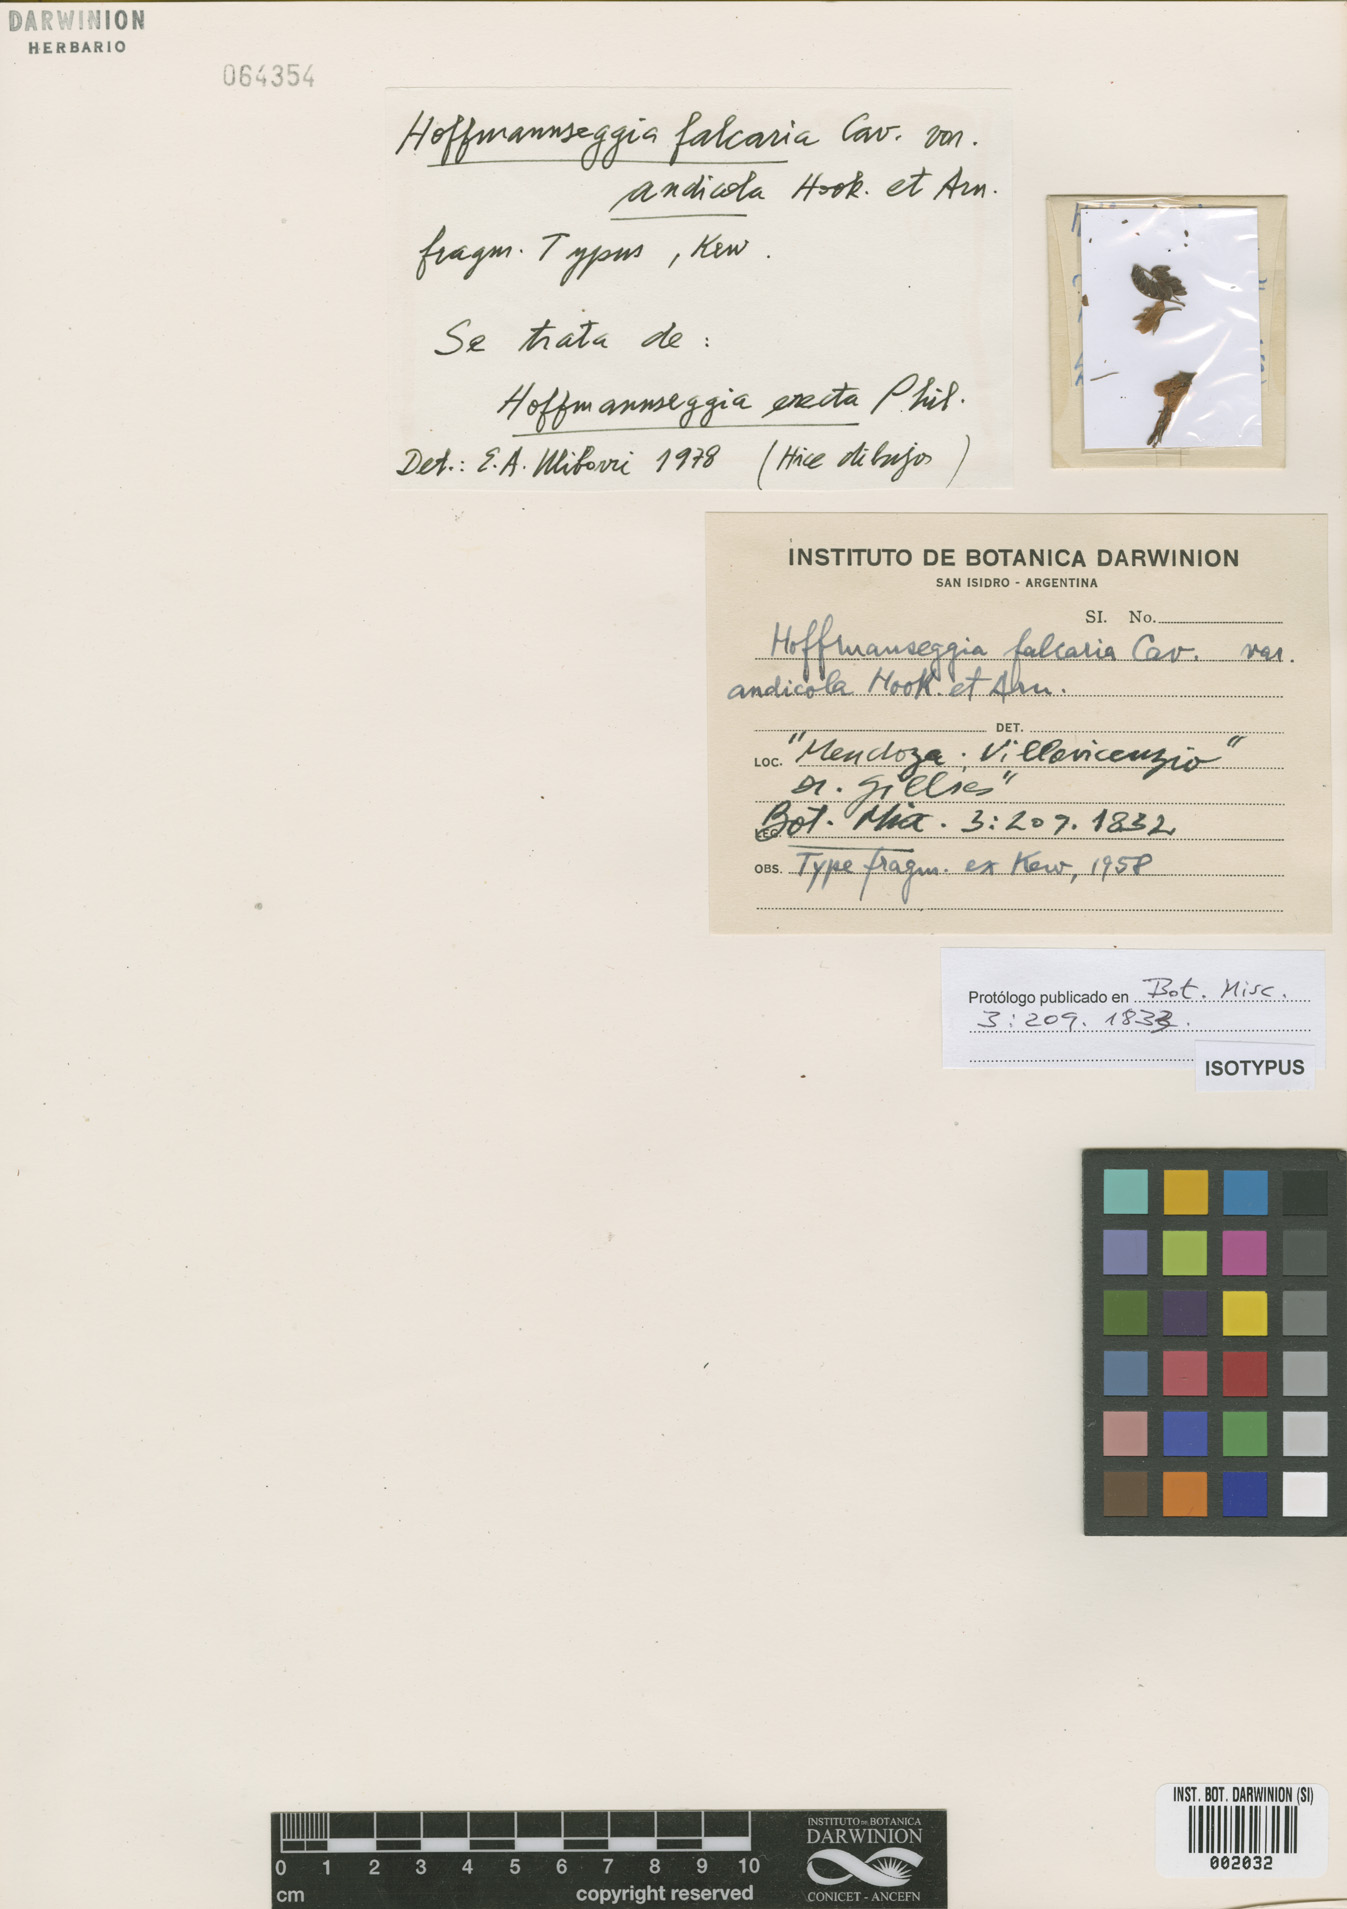 DARWINION
HERBARIO
064354
Hoffmannseggia falcaria Cav. var.
andicola Hook. et Arn.
fragm. Typus, Kew.
Se trata de:
Hoffmannseggia erecta Phil.
Det.: E. A. Ulibarri 1978 (Hice dibujos)
INSTITUTO DE BOTANICA DARWINION
SAN ISIDRO - ARGENTINA
SI. No.
Hoffmanseggia falcaria Cav. var.
andicola Hook. et Arn.
DET.
LOC. "Mendoza; Villavicenzio"
Dr. Gillies"
LEG. Bot. Misc. 3: 209. 1832
OBS. Type fragm. ex Kew, 1958
Protólogo publicado en Bot. Misc.
3: 209. 1833.
ISOTYPUS
0 1 2 3 4 5 6 7 8 9 10
cm copyright reserved
INSTITUTO DE BOTANICA
DARWINION
CONICET - ANCEFN
INST. BOT. DARWINION (SI)
002032